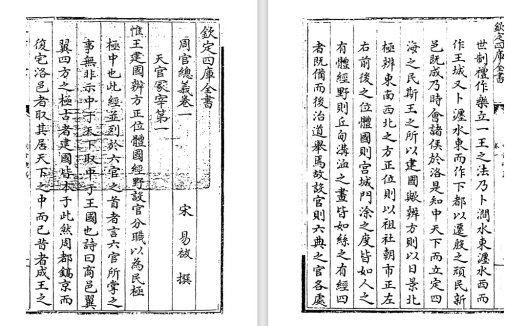 欽定四庫全書
周官總義卷一
宋 易祓 撰
天官冢宰第一
惟王建國辨方正位體國經野設官分職以為民極
極中也此經並列於六官之首者言六官所掌之
事無非示中于天下取中于王國也詩曰商邑翼
翼四方之極古者建國皆本于此然周都鎬京而
復宅洛邑者取其居天下之中而已昔者成王之
欽定四庫全書
世制禮作樂立一王之法乃卜澗水東瀍水西而
作王城又卜瀍水東而作下都以遷殷之頑民新
邑既成乃時會諸侯於洛是知中天下而立定四
海之民斯王之所以建國歟辨方則以日景北
極辨東南西北之方正位則以祖社朝市正左
右前後之位體國則宮城門涂之度皆如人之
有體經野則丘甸溝洫之畫皆如絲之有經四
者既備而後治道舉焉故設官則六典之官各處